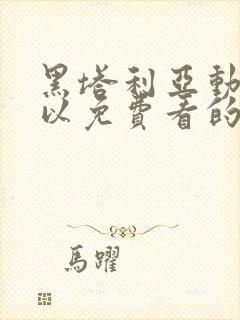 黑塔利亞動
以免費看的
馬躍